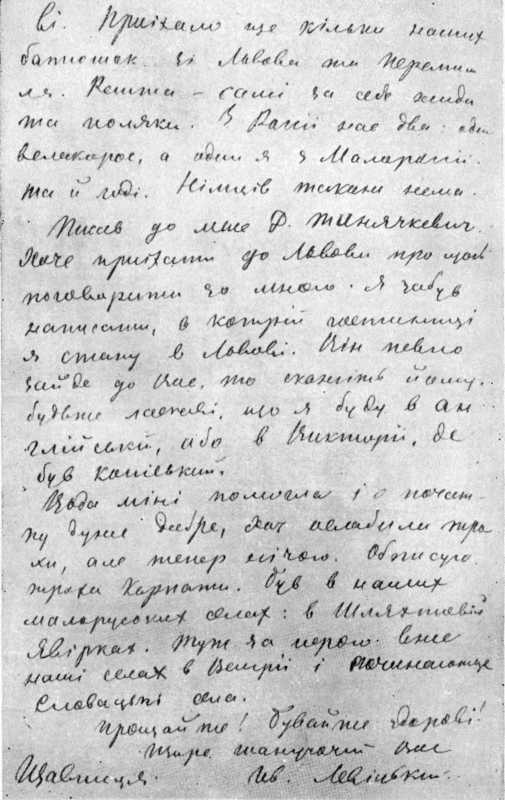 ві. Приїхало ще кілька наших
батюшок зі Львова та Перемиш
ля. Решта – самі за себе жиди
та поляки. З Росії нас два: один
великорос, а один я з Малоросії.
та й годі. Німців таками нема.
Писав до мене Д. Танячкевич.
Хоче приїхати до Львова про щось
поговорити зо мною. Я забув
написати, в котрій гостинниці
я стану в Львові. Він певно
зайде до Вас, то скажіть йому,
будьте ласкаві, що я буду в ан
глійській, або в Викторії, де
був Каніський.
Вода міні помогла і з почат-
ку дуже добре, хоч ослабили тро
хи, але тепер нічого. Обписую
трохи Карпати. Був в наших
малоруських селах: в Шляхтовій
Явірках. Тут за горою вже
наші села в Венгрії і починаються
Словацькі села.
Прощайте! Бувайте здорові!
Щиро шануючий Вас
Щавниця. Ив. Левіцький.